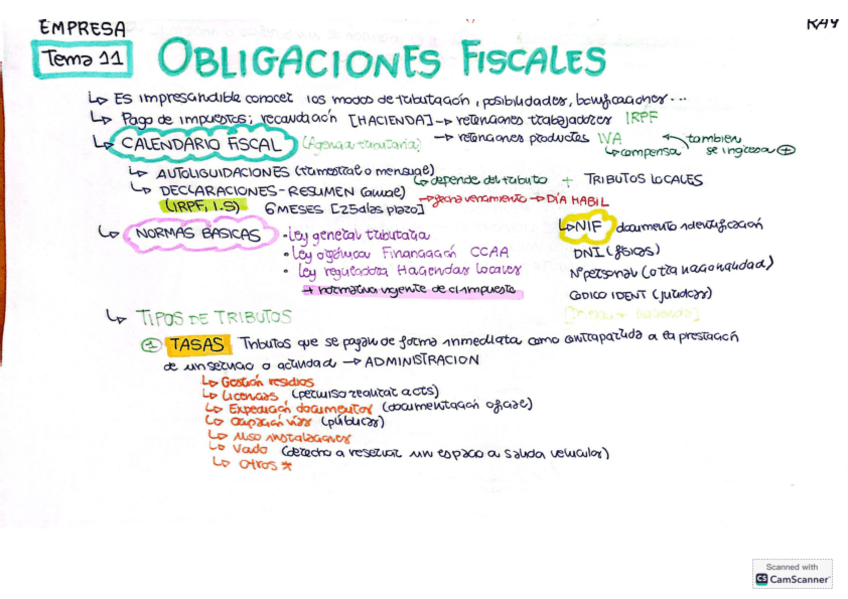 EMPRESA
RAY
Tema 11
OBLIGACIONES FISCALES
↳ Es imprescindible conocer los modos de tributación, posibilidades, bonificaciones...
↳ Pago de impuestos; recaudación [HACIENDA] → retenciones trabajadores IRPF
→ retenciones productes IVA
↳ compensa
tambien se ingresa +
↳ CALENDARIO FISCAL (Agencia tributaria)
↳ AUTOLIQUIDACIONES (trimestral o mensual)
↳ depende del tributo + TRIBUTOS LOCALES
↳ DECLARACIONES-RESUMEN (anual)
→ fecha vencimiento → DÍA HABIL
(IRPF, I.S) 6 MESES [25 días plazo]
↳ NORMAS BASICAS
• Ley general tributaria
• Ley orgánica Financiación CCAA
• Ley reguladora Haciendas Locales
+ normativa vigente de c/impuesto
↳ NIF documento identificación
DNI (físicas)
Nº personal (otra nacionalidad)
CODICO IDENT (jurídicas)
↳ TIPOS DE TRIBUTOS
① TASAS Tributos que se pagan de forma inmediata como contrapartida a la prestación
de un servicio o actividad → ADMINISTRACION
↳ Gestión residios
↳ Licencias (permiso realizar acts)
↳ Expedición documentos (documentación oficial)
↳ Ocupación vías (públicas)
↳ Uso instalaciones
↳ Vado (derecho a reservar un espacio a salida vehicular)
↳ Otros *
Scanned with
CS CamScanner